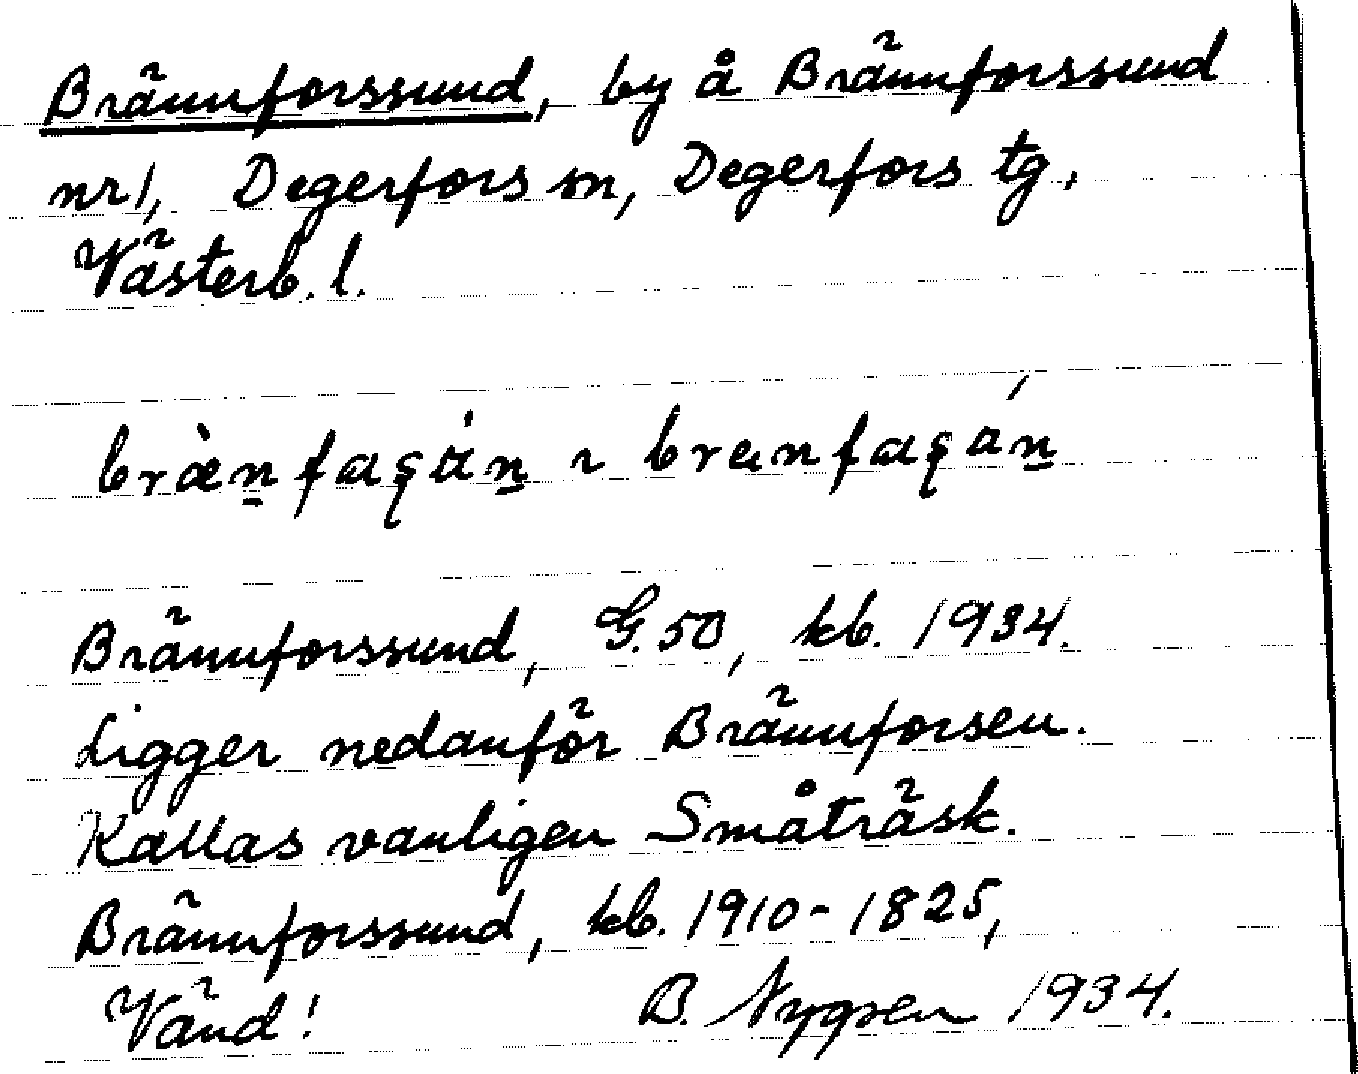 Brännforssund, by å Brännforssund
nr 1, Degerfors sn, Degerfors tg,
Västerb. l.
Brännforssund, G. 50, kb. 1934.
Ligger nedanför Brännforsen.
Kallas vanligen Småträsk.
Brännforssund, kb. 1910-1825,
Vänd! B. Nygren 1934.